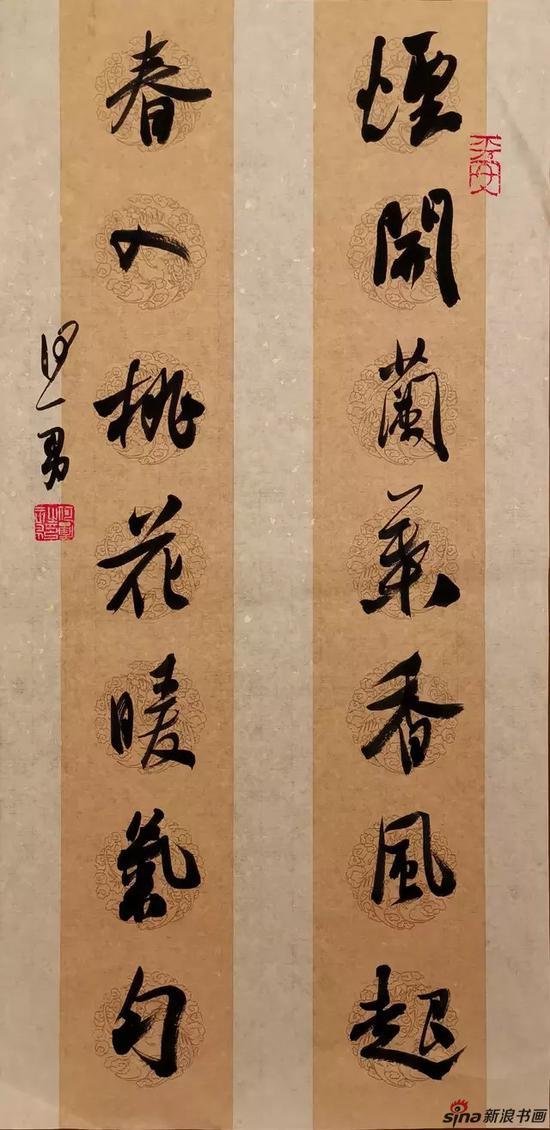 煙開蘭葉香風起
春入桃花暖氣勻
sina新浪书画